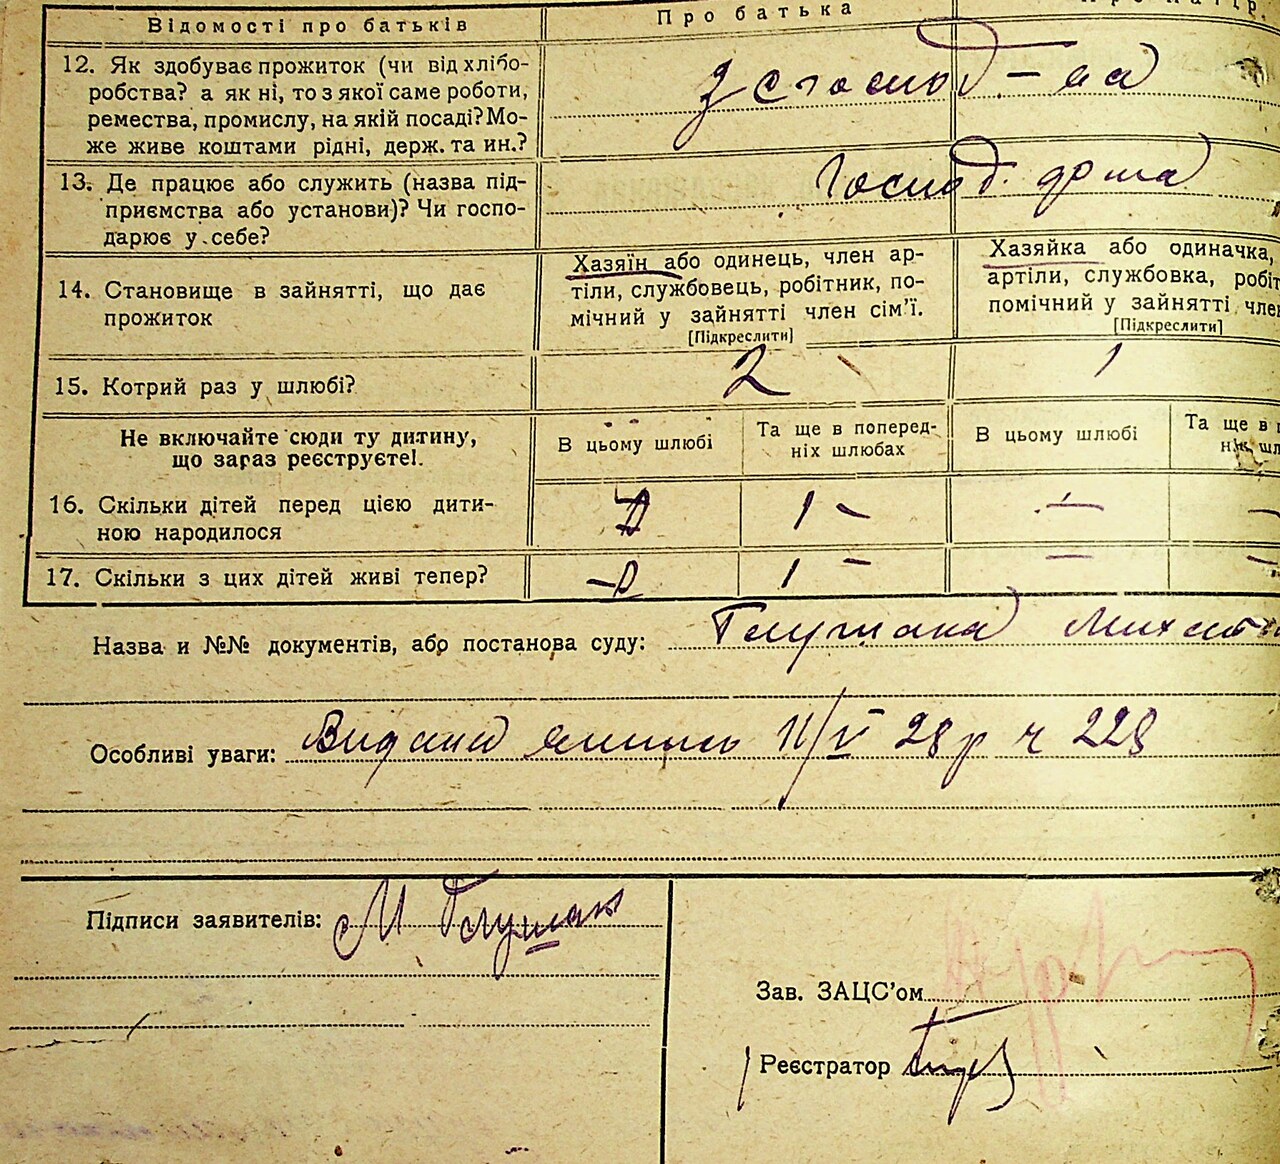 Відомості про батьків
Про батька
12. Як здобуває прожиток (чи від хлібо-
робства? а як ні, то з якої саме роботи,
ремества, промислу, на якій посаді? Мо-
же живе коштами рідні, держ. та ин.?
13. Де працює або служить (назва під-
приємства або установи)? Чи госпо-
дарює у себе?
14. Становище в зайнятті, що дає
прожиток
Хазяїн або одинець, член ар-
тіли, службовець, робітник, по-
мічний у зайнятті член сім'ї.
[Підкреслити]
Хазяйка або одиначка,
артіли, службовка, робіт
помічний у зайнятті член
[Підкреслити]
15. Котрий раз у шлюбі?
2
1
Не включайте сюди ту дитину,
що зараз реєструєте!.
В цьому шлюбі
Та ще в поперед-
ніх шлюбах
В цьому шлюбі
Та ще в п
ніх шл
16. Скільки дітей перед цією дити-
ною народилося
1 -
—
—
17. Скільки з цих дітей живі тепер?
1 -
—
—
Назва и №№ документів, або постанова суду:
Особливі уваги: 11/V 28 р ч 228
Підписи заявителів: М Глушак
Зав. ЗАЦС'ом
Реєстратор